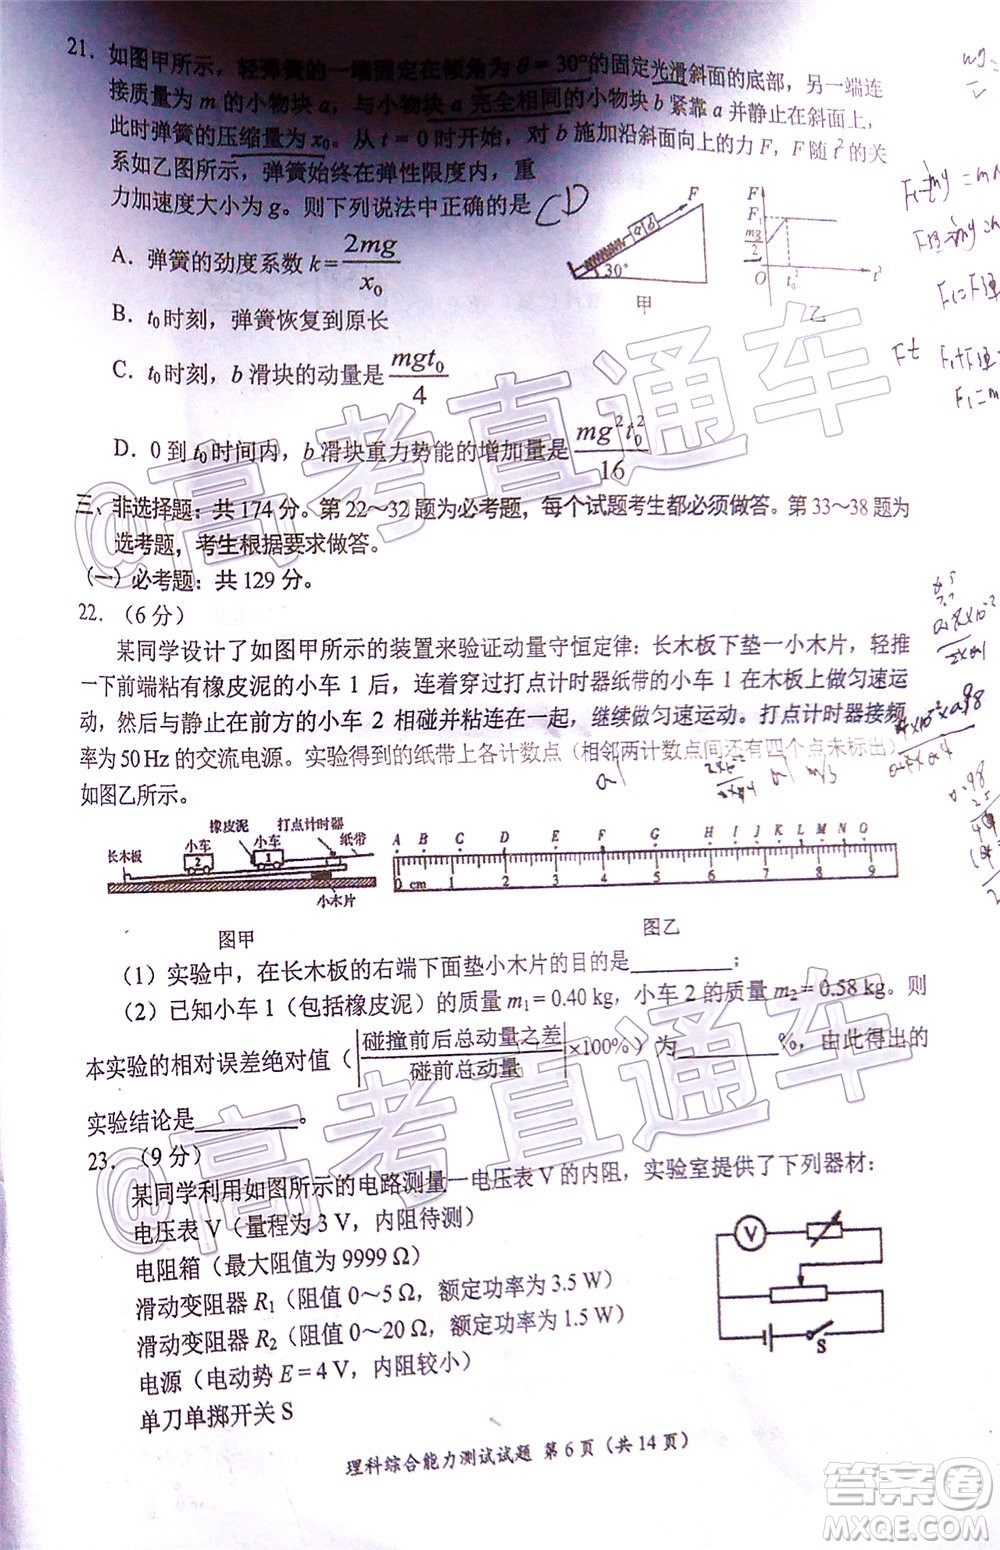 21. 如图甲所示，轻弹簧的一端固定在倾角为 θ = 30°的固定光滑斜面的底部，另一端连
接质量为 m 的小物块 a，与小物块 a 完全相同的小物块 b 紧靠 a 并静止在斜面上，
此时弹簧的压缩量为 x₀。从 t = 0 时开始，对 b 施加沿斜面向上的力 F，F 随 t² 的关
系如乙图所示，弹簧始终在弹性限度内，重
力加速度大小为 g。则下列说法中正确的是 CD
A. 弹簧的劲度系数 k = 2mg/x₀
B. t₀ 时刻，弹簧恢复到原长
C. t₀ 时刻，b 滑块的动量是 mgt₀/4
D. 0 到 t₀ 时间内，b 滑块重力势能的增加量是 mg²t₀²/16
F a b 30° 甲
F F₁ mg/2 O t₀² t² 乙
三、非选择题：共 174 分。第 22～32 题为必考题，每个试题考生都必须做答。第 33～38 题为
选考题，考生根据要求做答。
（一）必考题：共 129 分。
22. （6 分）
某同学设计了如图甲所示的装置来验证动量守恒定律：长木板下垫一小木片，轻推
一下前端粘有橡皮泥的小车 1 后，连着穿过打点计时器纸带的小车 1 在木板上做匀速运
动，然后与静止在前方的小车 2 相碰并粘连在一起，继续做匀速运动。打点计时器接频
率为 50 Hz 的交流电源。实验得到的纸带上各计数点（相邻两计数点间还有四个点未标出）
如图乙所示。
橡皮泥 打点计时器
长木板 小车 小车 纸带
2 1
小木片
图甲
A B C D E F G H I J K L M N O
0 cm 1 2 3 4 5 6 7 8 9
图乙
（1）实验中，在长木板的右端下面垫小木片的目的是________；
（2）已知小车 1（包括橡皮泥）的质量 m₁ = 0.40 kg，小车 2 的质量 m₂ = 0.58 kg。则
本实验的相对误差绝对值（|碰撞前后总动量之差/碰前总动量|×100%）为________%，由此得出的
实验结论是________。
23. （9 分）
某同学利用如图所示的电路测量一电压表 V 的内阻，实验室提供了下列器材：
电压表 V（量程为 3 V，内阻待测）
电阻箱（最大阻值为 9999 Ω）
滑动变阻器 R₁（阻值 0～5 Ω，额定功率为 3.5 W）
滑动变阻器 R₂（阻值 0～20 Ω，额定功率为 1.5 W）
电源（电动势 E = 4 V，内阻较小）
单刀单掷开关 S
V
S
理科综合能力测试试题 第 6 页（共 14 页）
@高考直通车
@高考直通车
答案圈
MXQE.COM